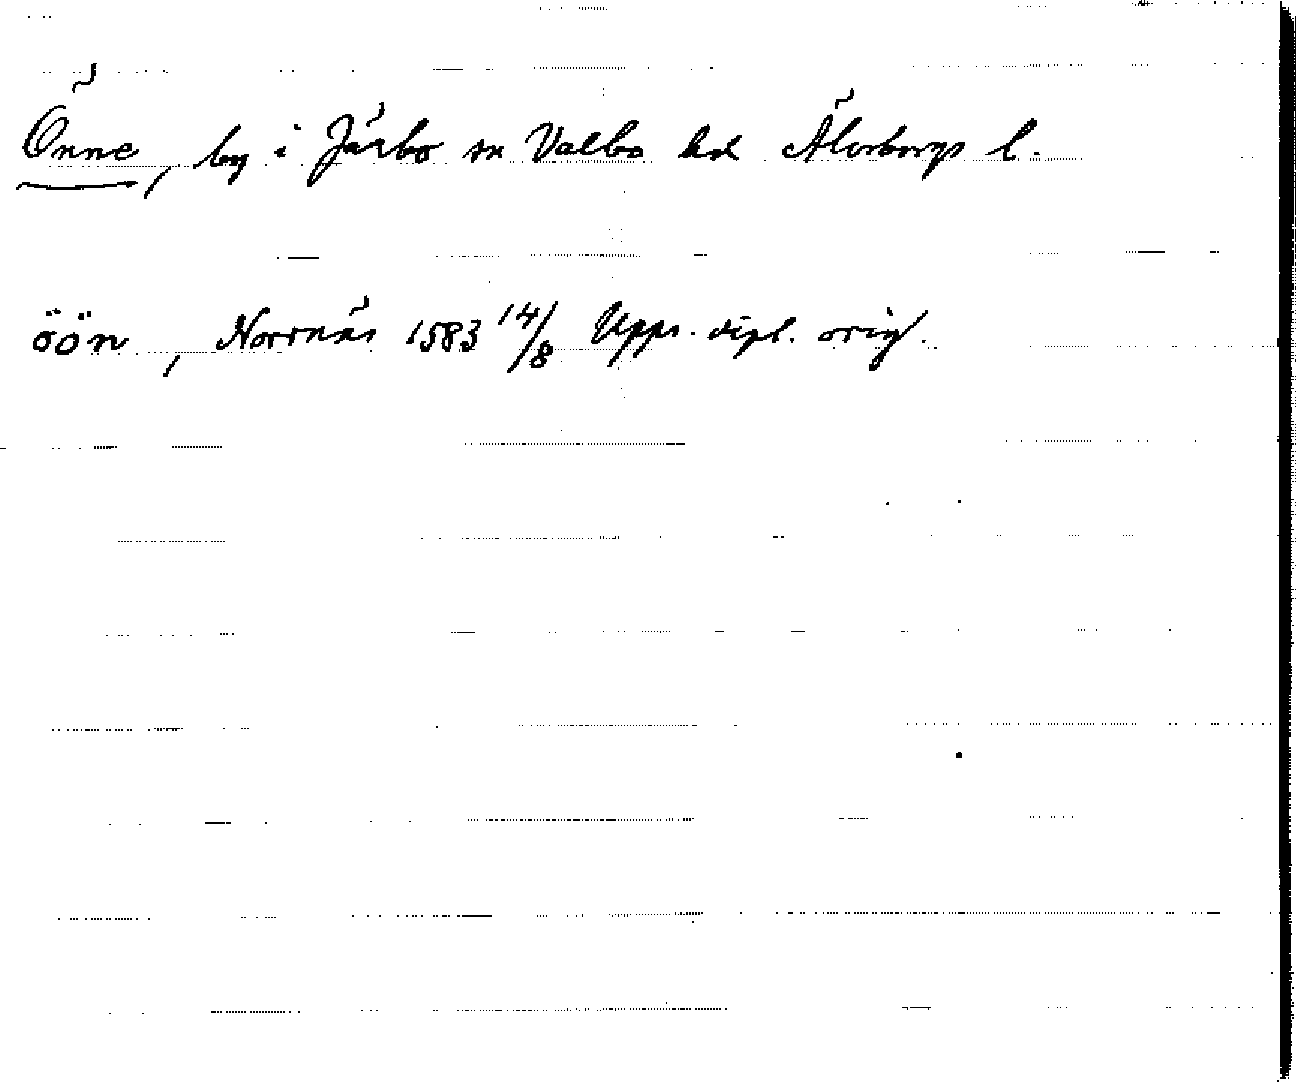 Önne, by i Järbo sn Valbo hd Älvsborgs l.
öön, Norrnäs 1583 14/8 Upps. dipl. orig.